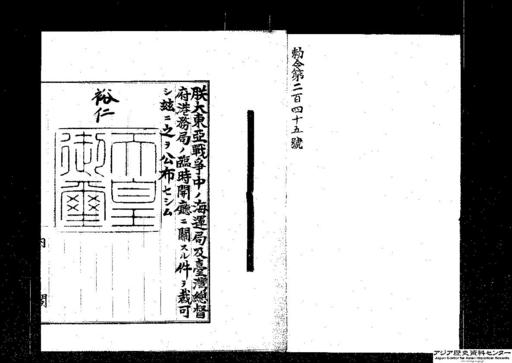 勅令第二百四十五號
朕大東亞戰爭中ノ海運局及臺灣總督
府港務局ノ臨時開廳ニ關スル件ヲ裁可
シ玆ニ之ヲ公布セシム
裕仁
天皇
御璽
内閣
アジア歴史資料センター
Japan Center for Asian Historical Records